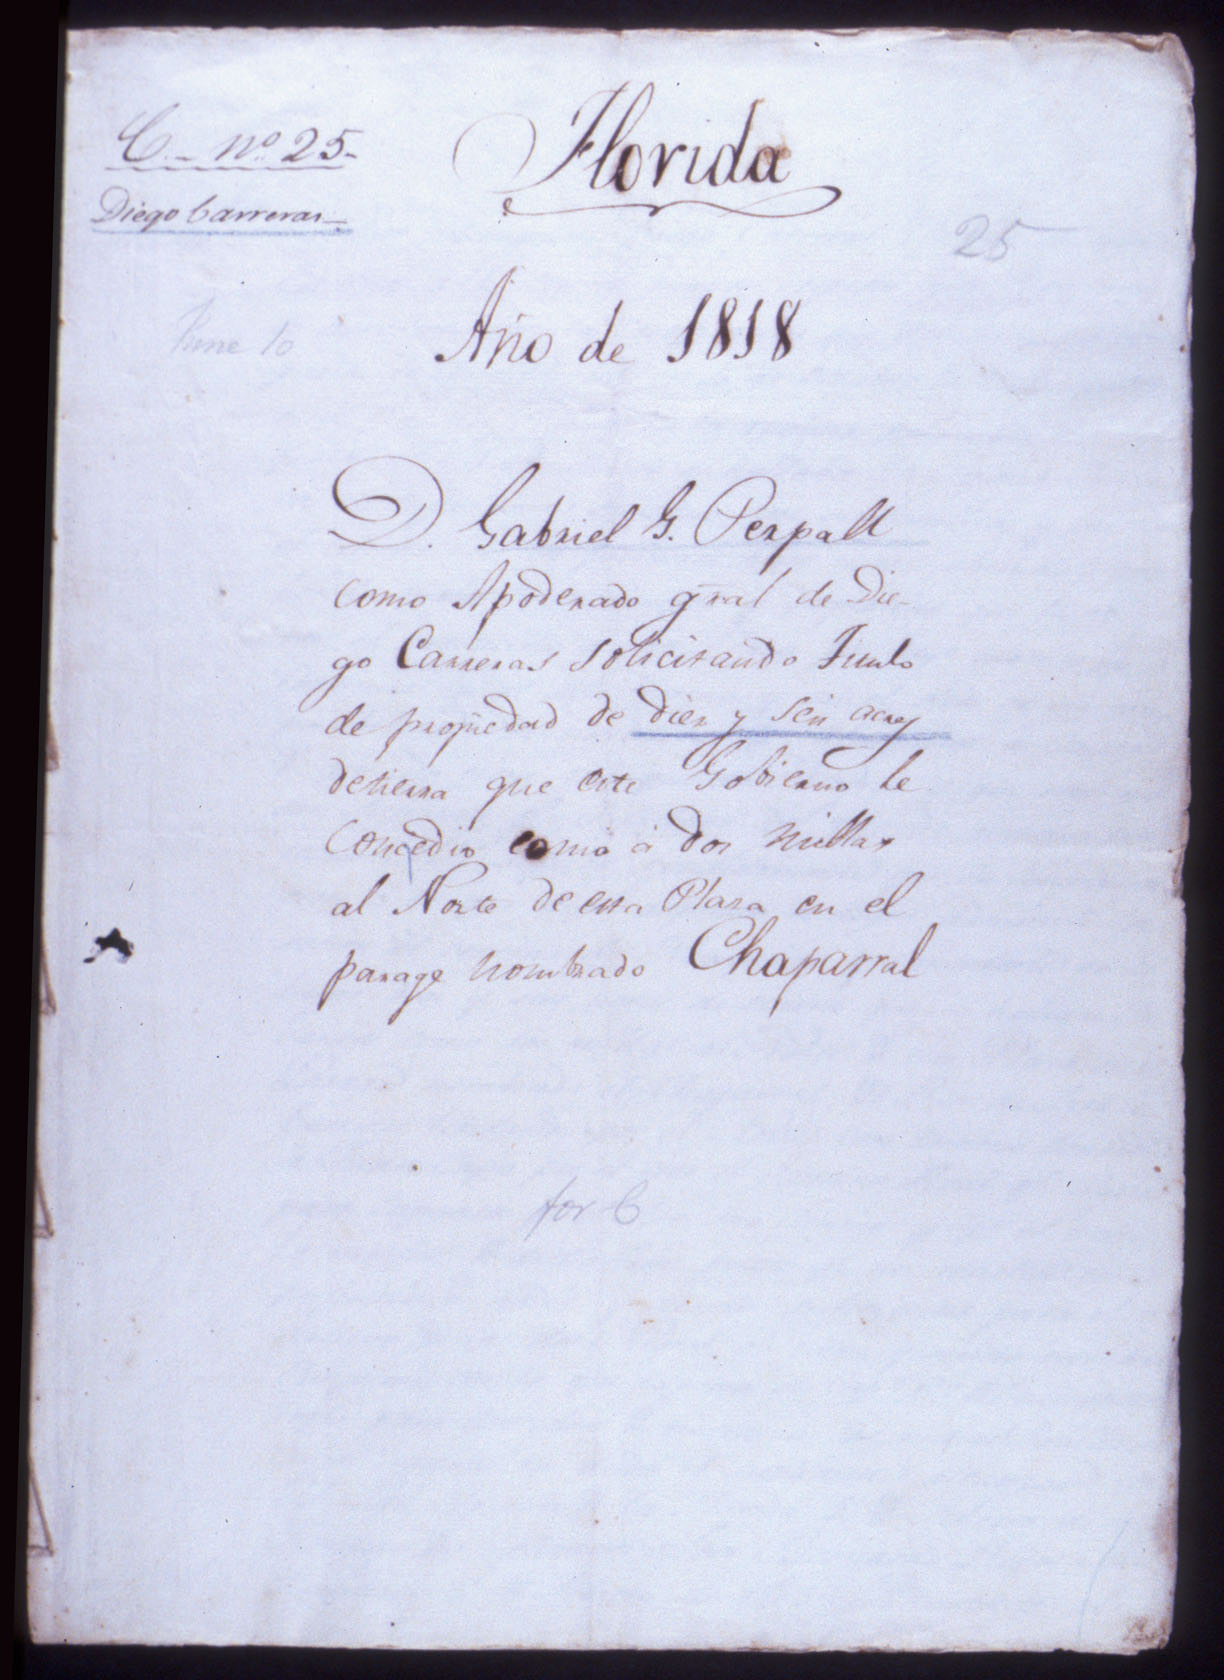 C. nº 25.
Diego Carreras
Florida
25
Año de 1818
D. Gabriel G. Perpall
como Apoderado gral de Die-
go Carreras solicitando Titulo
de propiedad de diez y seis acres
de tierra que este Gobierno le
Concedio como á dos millas
al Norte de esta Plaza en el
parage nombrado Chaparral
for C